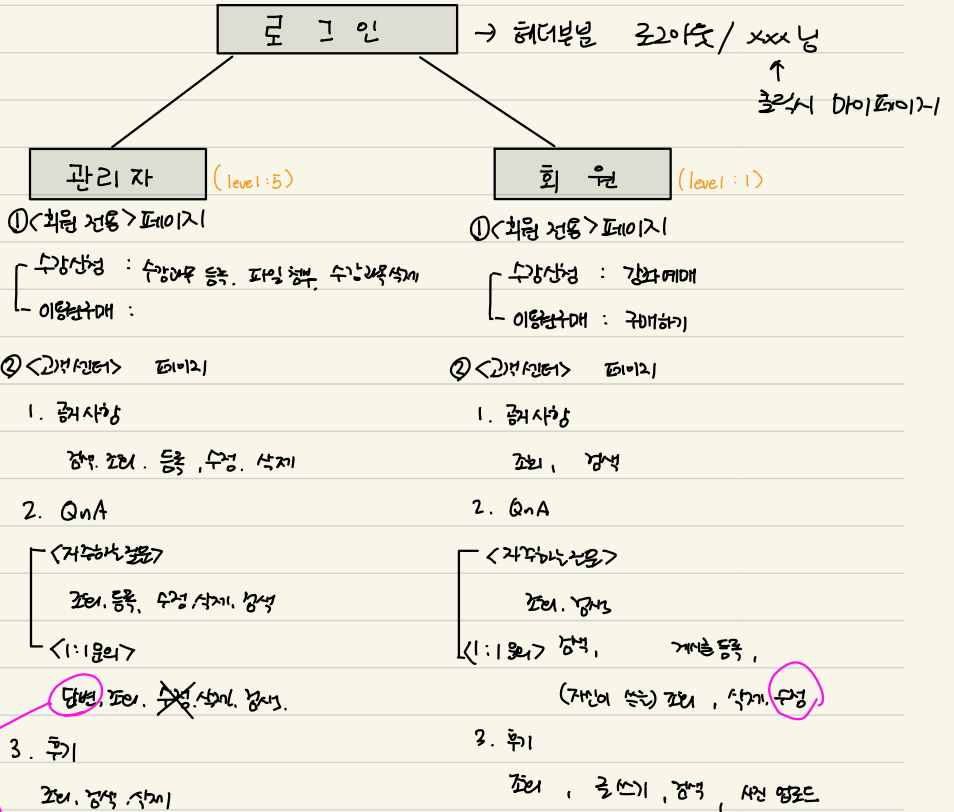 로 그 인 → 헤더부분 로그아웃 / xxx 님
↑
클릭시 마이페이지
관리자 (level : 5)
①<회원 전용> 페이지
수강신청 : 수강과목 등록, 파일 첨부, 수강과목 삭제
이용권구매 :
② <고객센터> 페이지
1. 공지사항
검색, 조회, 등록, 수정, 삭제
2. QnA
<자주하는질문>
조회, 등록, 수정, 삭제, 검색
<1:1문의>
답변, 조회, 수정, 삭제, 검색.
3. 후기
조회, 검색, 삭제
회 원 (level : 1)
①<회원 전용> 페이지
수강신청 : 강좌예매
이용권구매 : 구매하기
② <고객센터> 페이지
1. 공지사항
조회, 검색
2. QnA
<자주하는질문>
조회, 검색
<1:1문의> 검색, 게시글 등록,
(자신이 쓰는) 조회, 삭제, 수정
3. 후기
조회, 글쓰기, 검색, 사진 업로드